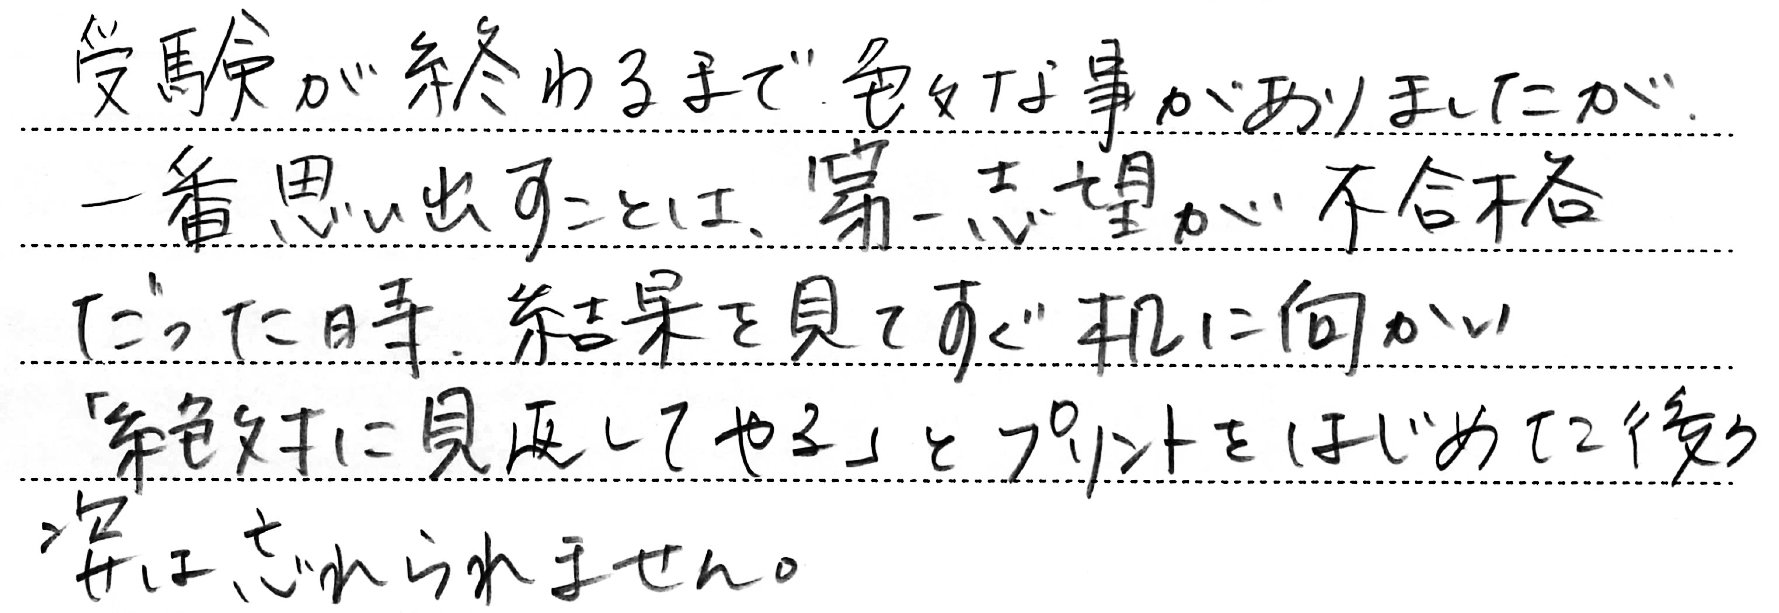 受験が終わるまで色々な事がありましたが、
一番思い出すことは、第一志望が不合格
だった時、結果を見てすぐ机に向かい
「絶対に見返してやる」とプリントをはじめた後ろ
姿は忘れられません。